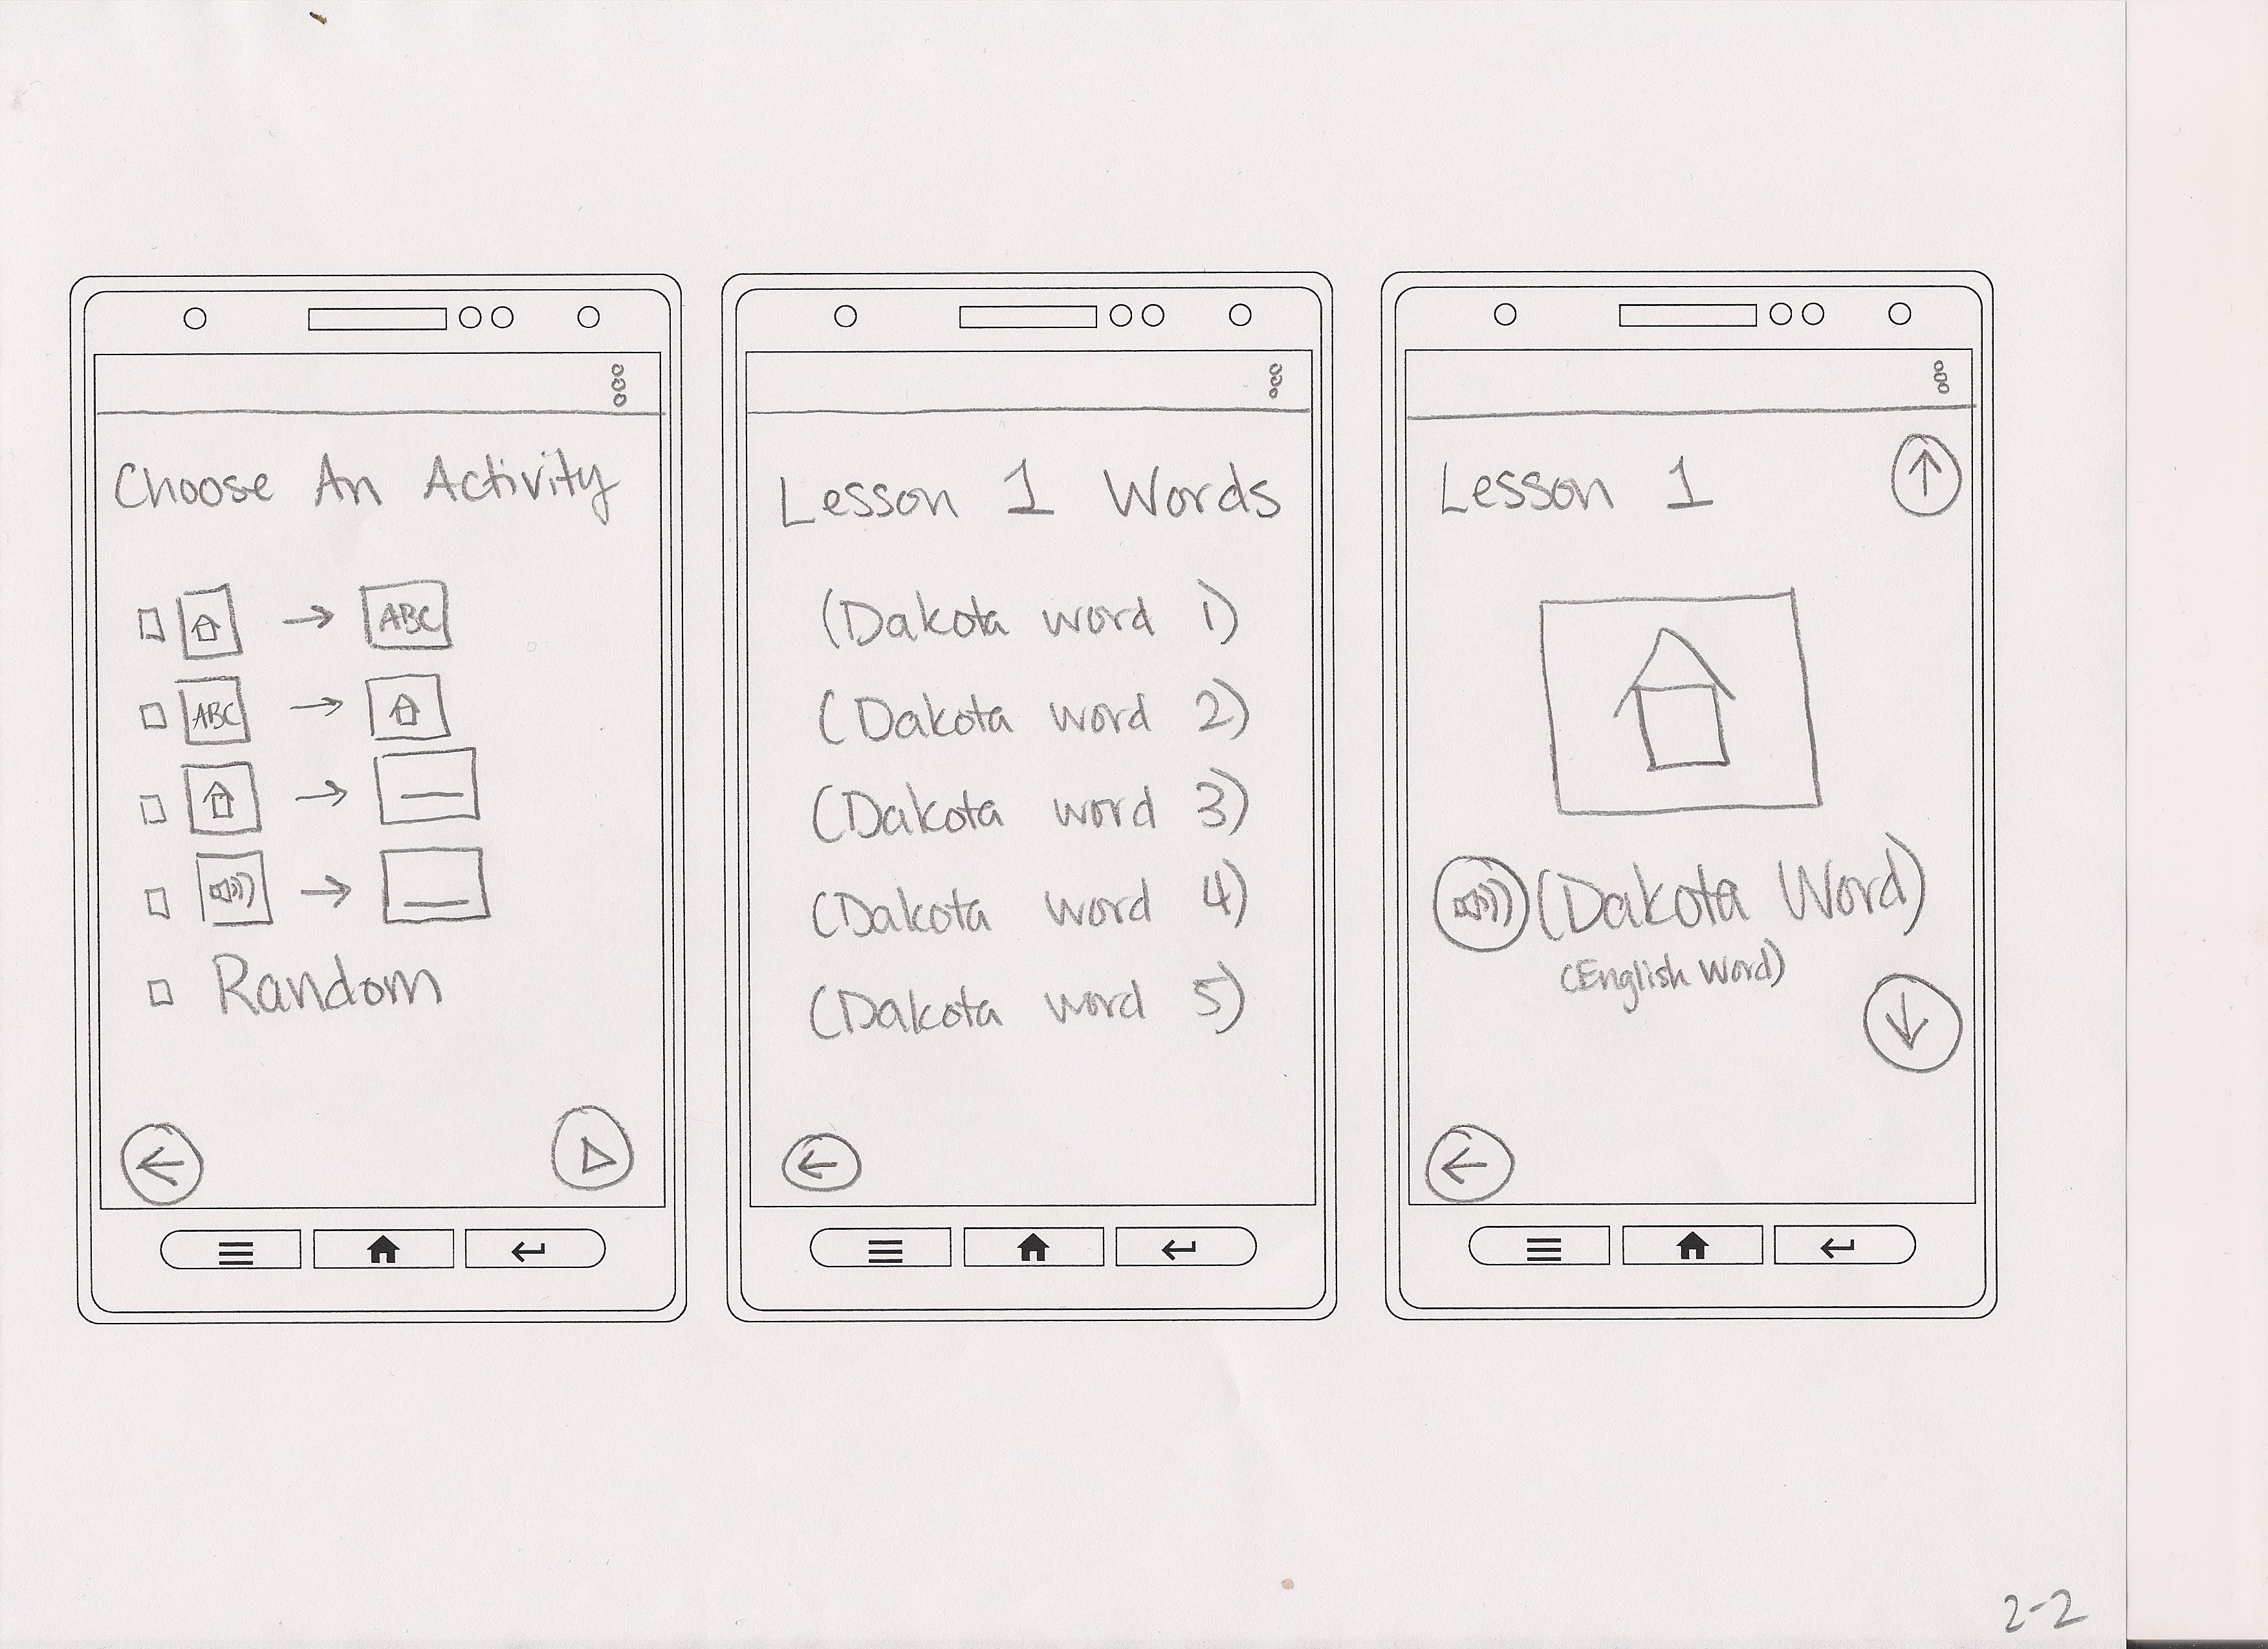 Choose An Activity
ABC
ABC
Random
Lesson 1 Words
(Dakota word 1)
(Dakota word 2)
(Dakota word 3)
(Dakota word 4)
(Dakota word 5)
Lesson 1
(Dakota Word)
(English Word)
2-2